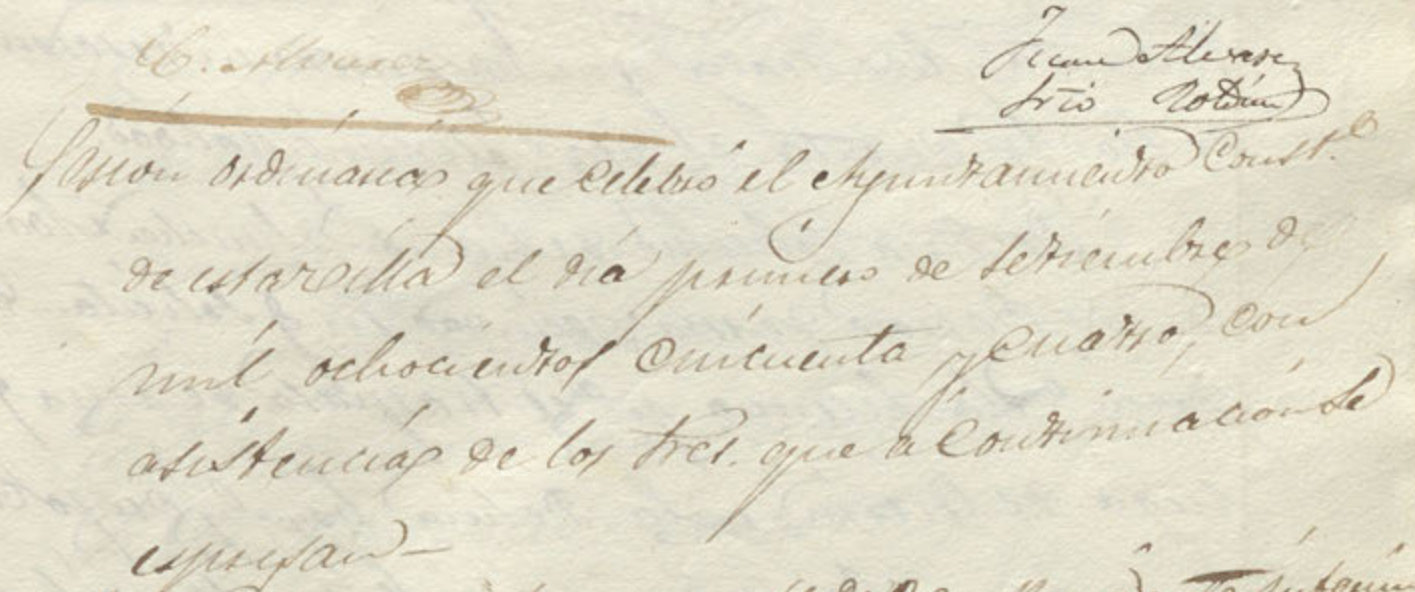 Alvarez
Juan Alvarez
Srio
Sesion ordinaria que Celebró el Ayuntamiento Const.l
de esta Villa el dia primero de Setiembre de
mil ochocientos cincuenta y cuatro, con
asistencia de los Sres. que a Continuacion se
espresan—